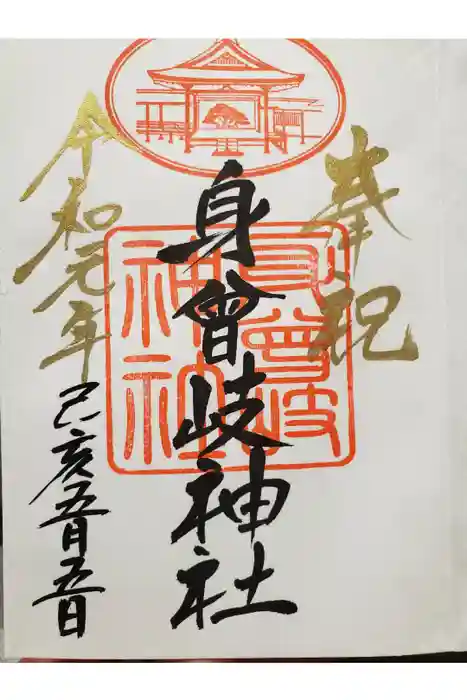 奉祝
身曾岐神社
身曾岐
神社
令和元年
己亥五月五日